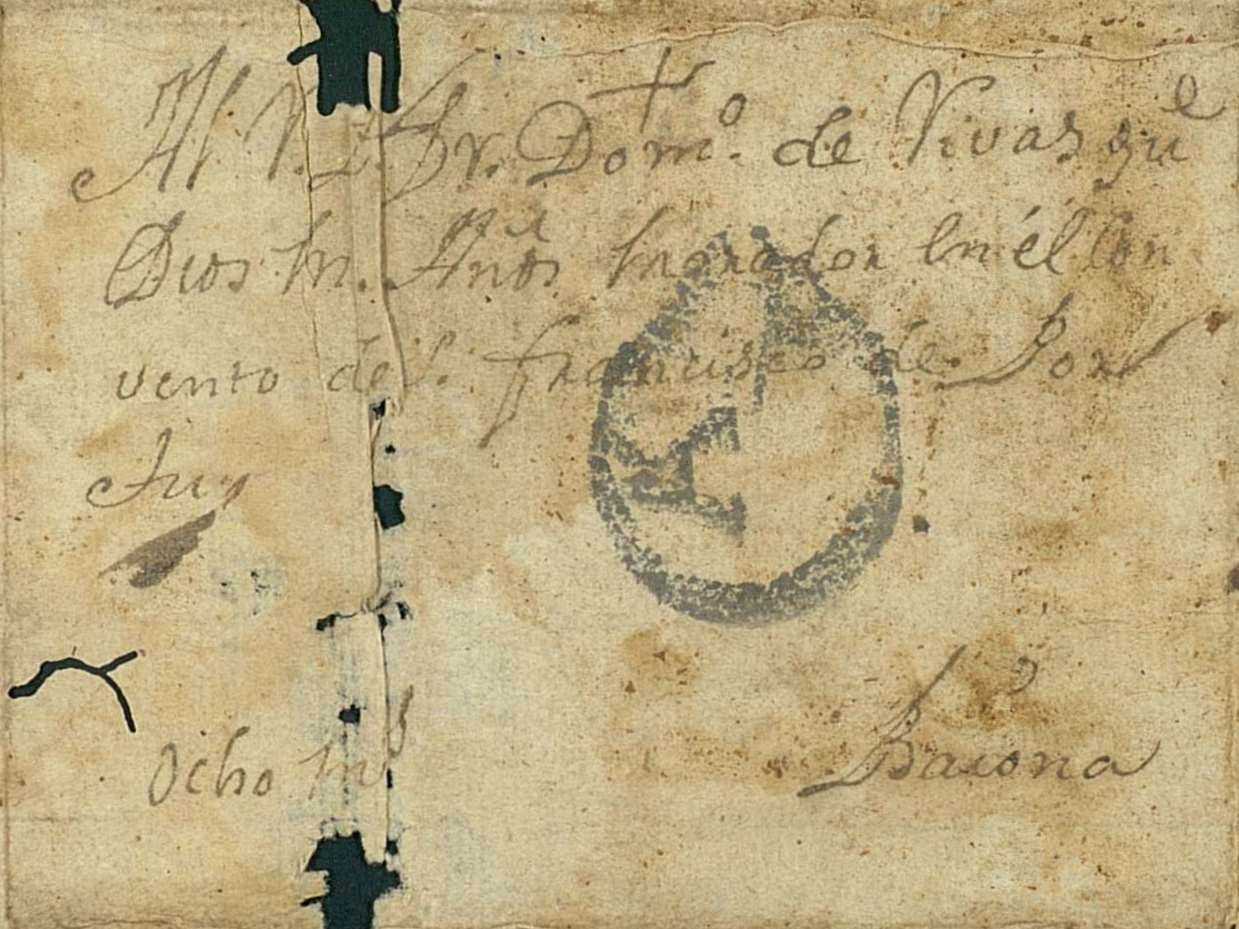 Al R. P. Fr. Domo. de Vivas gue
Dios m. Años morador en él Con
vento de S. francisco de Por
Tuy
Ocho ms
Baiona